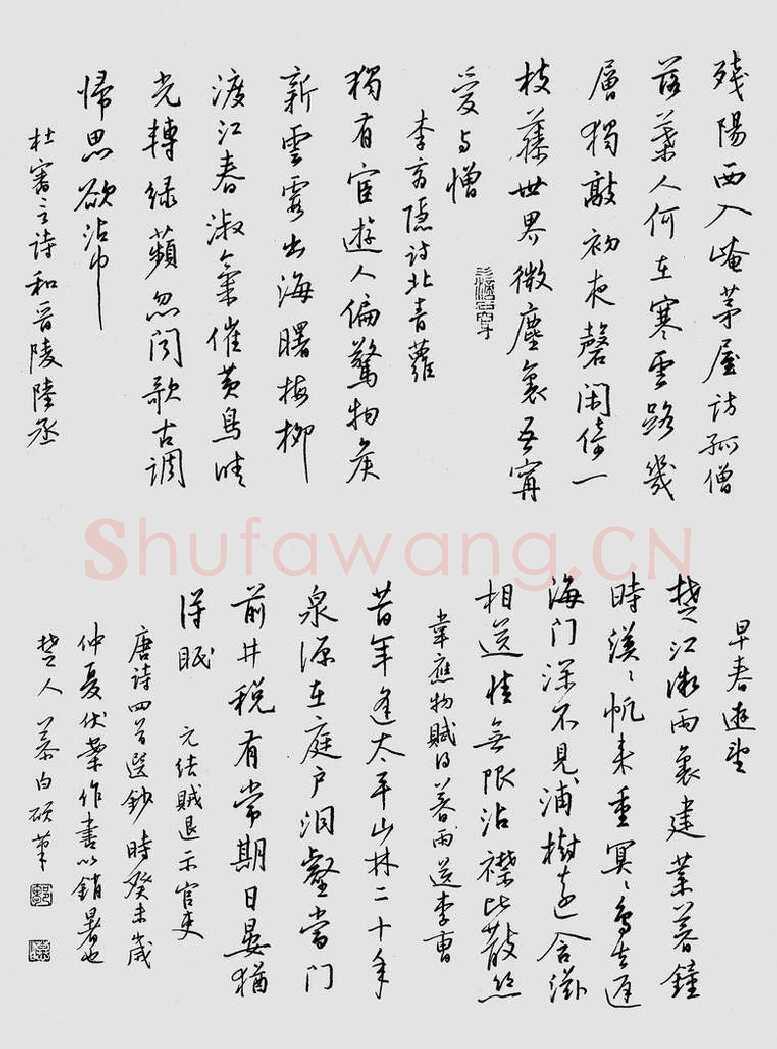 残陽西入崦茅屋訪孤僧
落葉人何在寒雲路幾
層獨敲初夜磬閑倚一
枝藤世界微塵裏吾寧
愛与憎
李商隐詩北青蘿
獨有宦遊人偏驚物候
新雲霞出海曙梅柳
渡江春淑氣催黄鳥晴
光轉緑蘋忽闻歌古調
歸思欲沾巾
杜審言詩和晋陵陸丞
Shufawang.CN
早春遊望
楚江微雨裏建業暮鐘
時漠々帆来重冥々鳥去遲
海门深不見浦樹遠含滋
相送情無限沾襟比散絲
韋應物賦得暮雨送李曹
昔年逢太平山林二十年
泉源在庭户洞壑當门
前井税有常期日晏猶
得眠 元结賊退示官吏
唐詩四首選鈔 時癸未歲
仲夏伏案作書以銷暑也
楚人 慕白硕筆